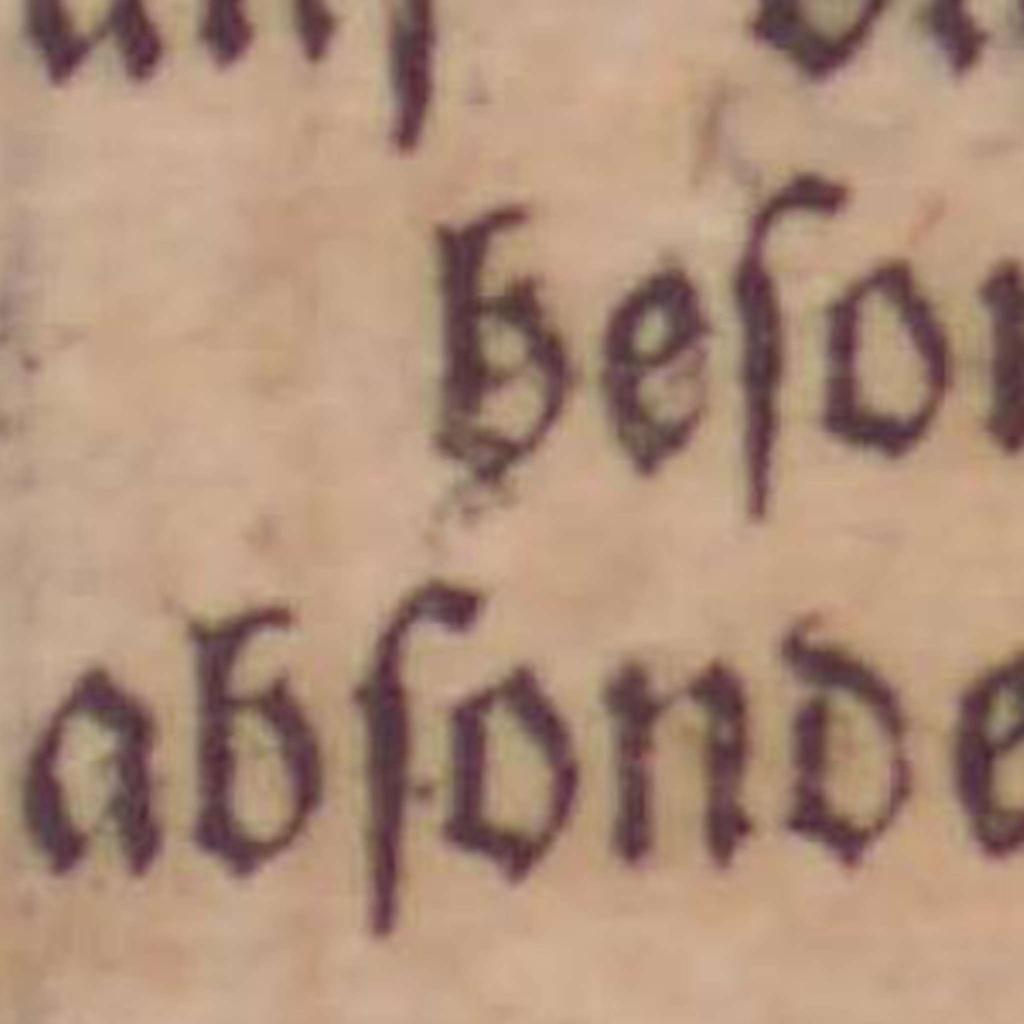 beſon
abſonde